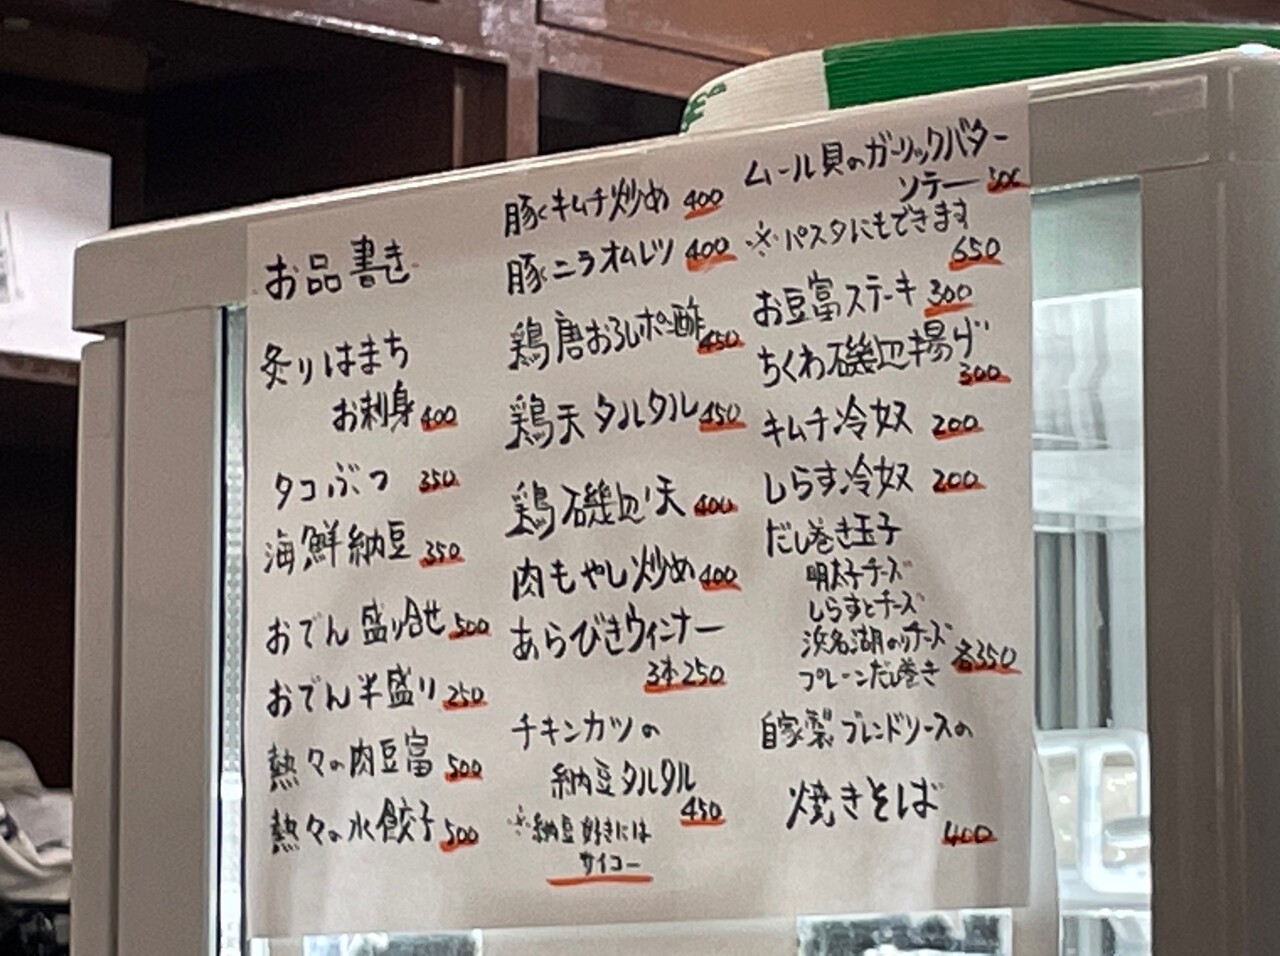 お品書き
炙りはまち
お刺身 400
タコぶつ 350
海鮮納豆 350
おでん盛り合せ 500
おでん半盛り 250
熱々の肉豆富 500
熱々の水餃子 500
豚キムチ炒め 400
豚ニラオムレツ 400
鶏唐おろしポン酢 450
鶏天タルタル 450
鶏磯辺天 400
肉もやし炒め 400
あらびきウィンナー
3本250
チキンカツの
納豆タルタル
450
※納豆好きには
サイコー
ムール貝のガーリックバター
ソテー 500
※パスタにもできます
650
お豆富ステーキ 300
ちくわ磯辺揚げ
300
キムチ冷奴 200
しらす冷奴 200
だし巻き玉子
明太子チーズ
しらすとチーズ
浜名湖のりチーズ
プレーンだし巻き 各350
自家製ブレンドソースの
焼きそば
400